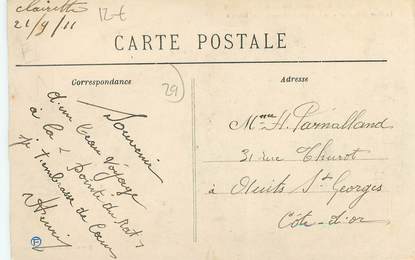 Clairette
12€
21/9/11
CARTE POSTALE
Correspondance
29
Adresse
Souvenir
d'un beau voyage
à la Pointe du Raz,
je t'embrasse de Coeur
Mme H. Parnalland
31 rue Thurot
à Nuits St Georges
Côte-d'or